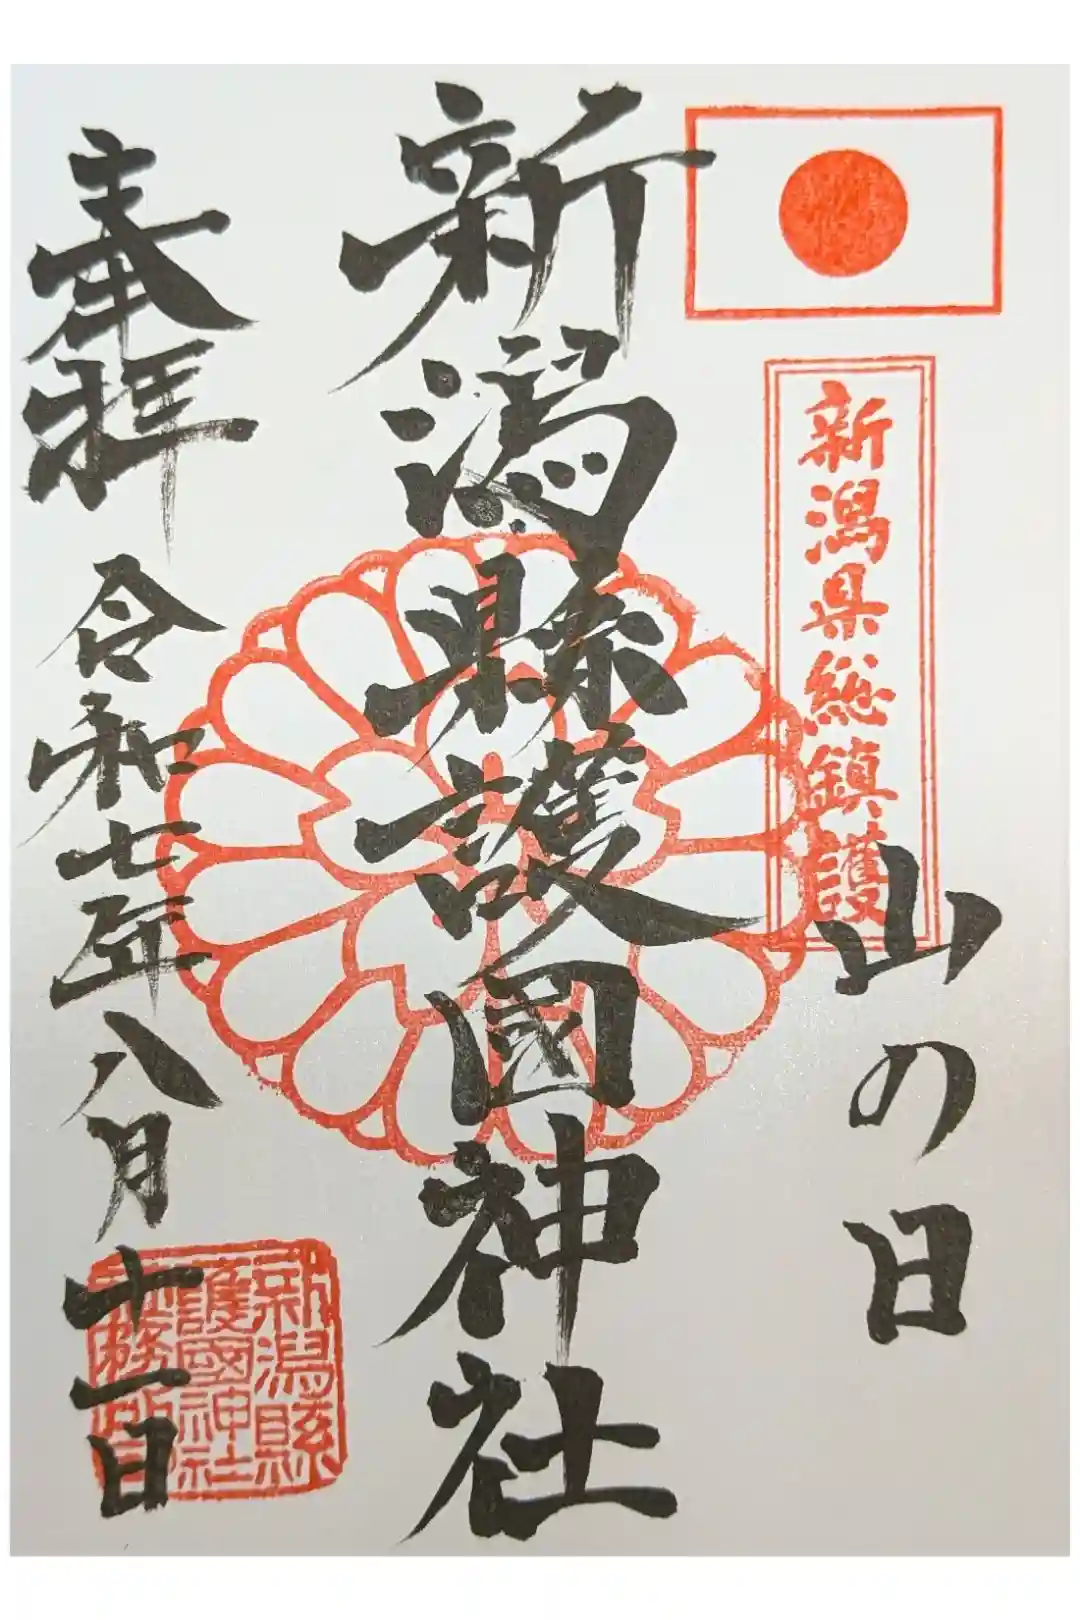 新潟県総鎮護
山の日
新潟縣護國神社
奉拝
令和七年八月十一日
新潟縣
護國神社
社務所印